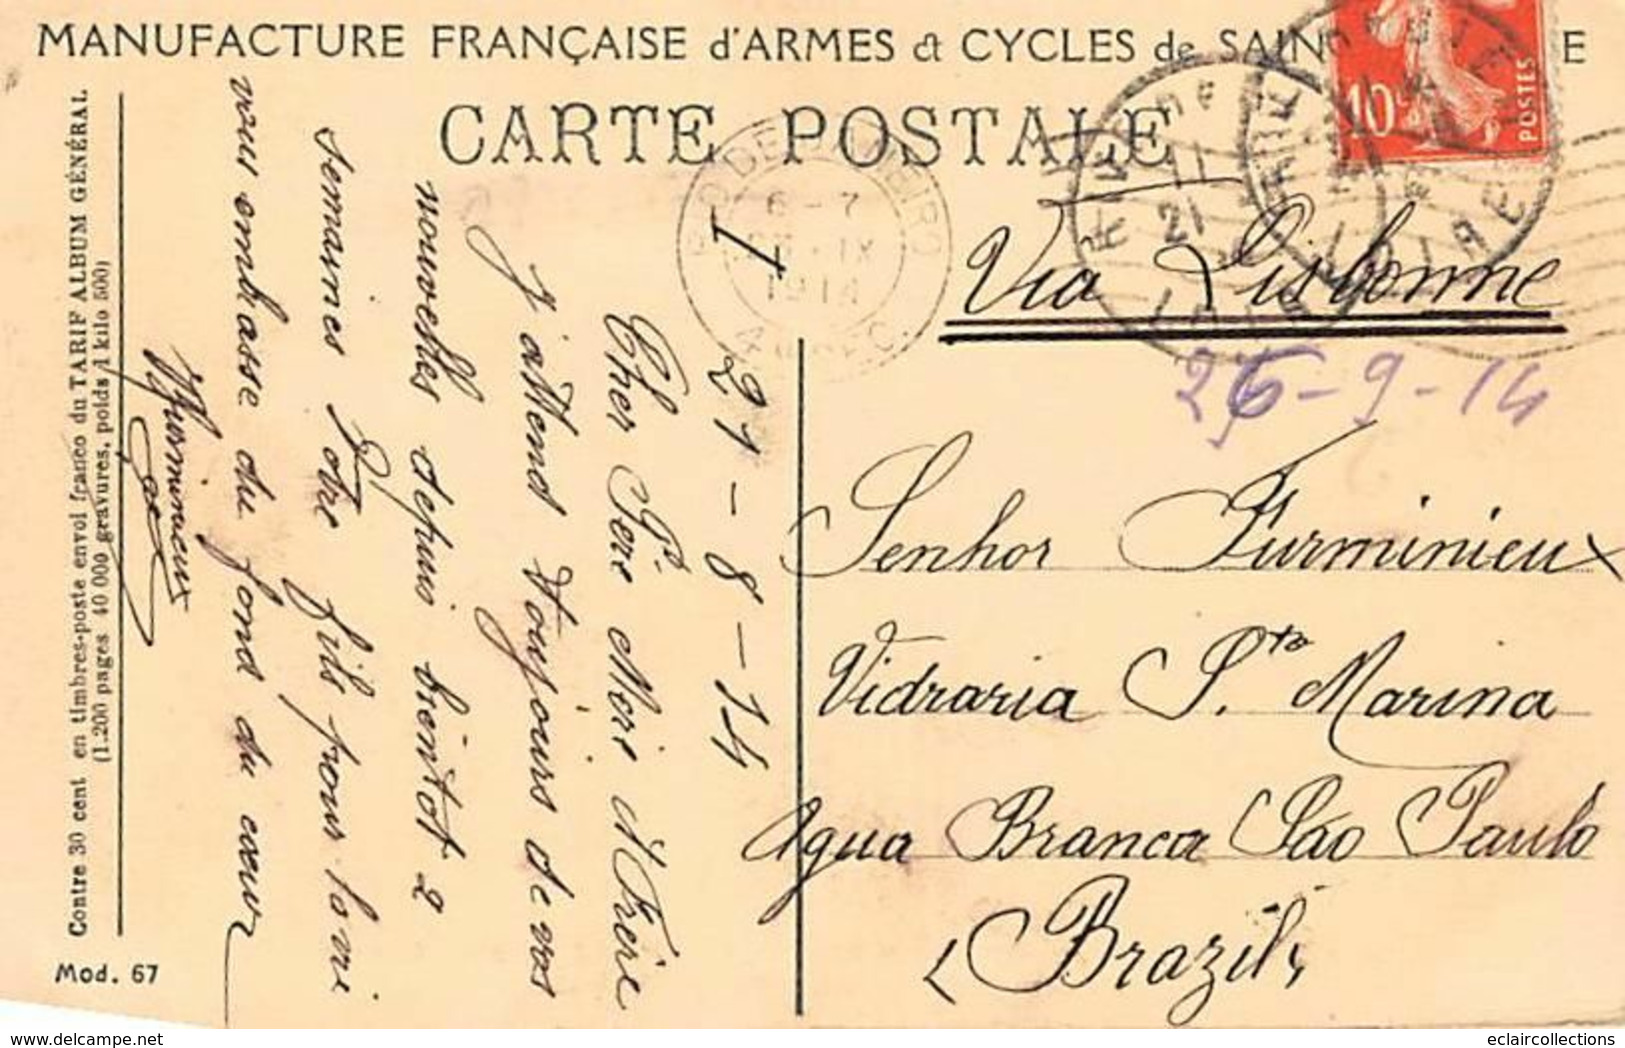 MANUFACTURE FRANÇAISE d'ARMES & CYCLES de SAIN E
CARTE POSTALE
10c
POSTES
RIO DE JANEIRO
6-7
IX
1914
T
21
Via Lisbonne
26-9-14
Senhor Furminieux
Vidraria Sta Marina
Agua Branca São Paulo
(Brazil)
21-8-14
Cher Père Mère et Frère
J'attend toujours de vos
nouvelles depuis bientot 2
semaines Votre fils pour la vie
vous embrasse du fond du cœur
Furminieux
Contre 30 cent en timbres-poste envoi franco du TARIF ALBUM GÉNÉRAL
(1.200 pages 40 000 gravures, poids 1 kilo 500)
Mod. 67
eclaircollections